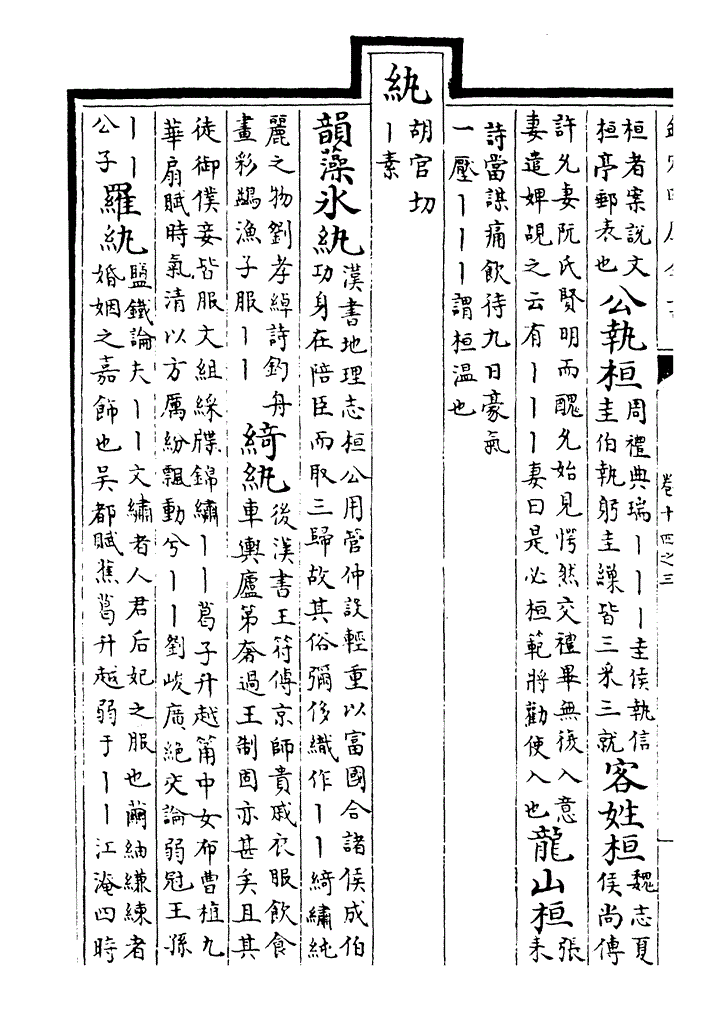 卷十四之三
桓者案說文
桓亭郵表也
公執桓
周禮典瑞丨丨丨圭侯執信
圭伯執躬圭繅皆三采三就
客姓桓
魏志夏
侯尚傳
許允妻阮氏賢明而醜允始見愕然交禮畢無復入意
妻遣婢覘之云有丨丨丨妻曰是必桓範將勸使入也
龍山桓
張
耒
詩當謀痛飲待九日豪氣
一壓丨丨丨謂桓温也
紈
胡官切
丨素
韻藻氷紈
漢書地理志桓公用管仲設輕重以富國合諸侯成伯
功身在陪臣而取三歸故其俗彌侈織作丨丨綺繡純
麗之物劉孝綽詩釣舟
畫彩鷁漁子服丨丨
綺紈
後漢書王符傳京師貴戚衣服飲食
車輿廬第奢過王制固亦甚矣且其
徒御僕妾皆服文組綵牒錦繡丨丨葛子升越筩中女布曹植九
華扇賦時氣清以方厲紛飄動兮丨丨劉峻廣絶交論弱冠王孫
丨丨
公子
羅紈
鹽鐵論夫丨丨文繡者人君后妃之服也繭紬縑練者
婚姻之嘉飾也吳都賦蕉葛升越弱于丨丨江淹四時